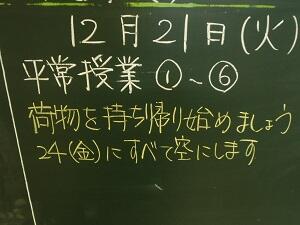 12月21日(火)
平常授業 ①~⑥
荷物を持ち帰り始めましょう
24(金)にすべて空にします